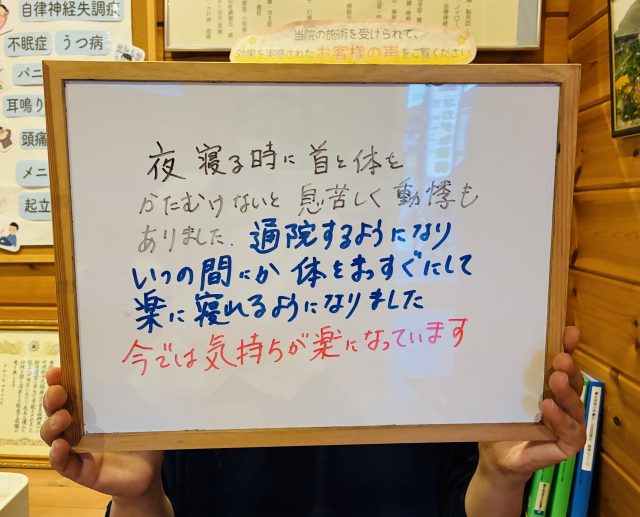 自律神経失調症
不眠症
うつ病
パニ
耳鳴り
頭痛
メニ
起立
当院の施術を受けられて、
効果を実感されたお客様の声をご覧ください
夜 寝る時に 首と体を
かたむけないと 息苦しく 動悸も
ありました. 通院するようになり
いつの間にか 体をまっすぐにして
楽に 寝れるようになりました
今では 気持ちが楽になっています